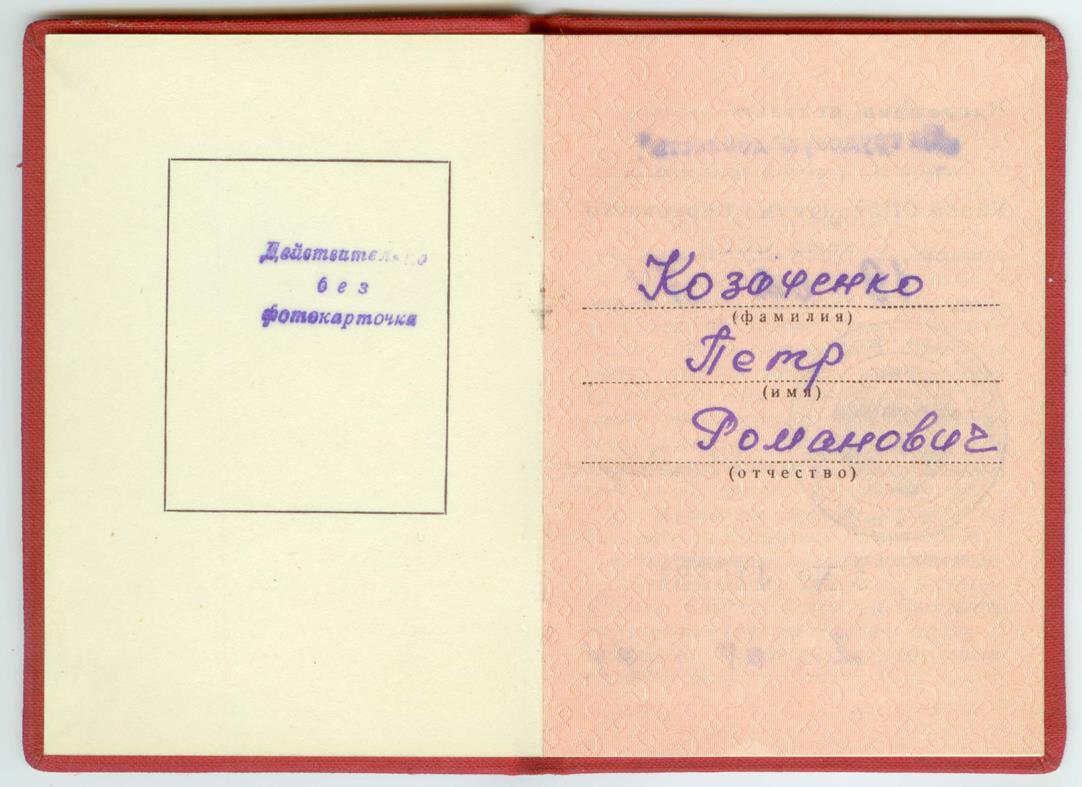 Действительно
без
фотокарточки
Козаченко
(фамилия)
Петр
(имя)
Романович
(отчество)